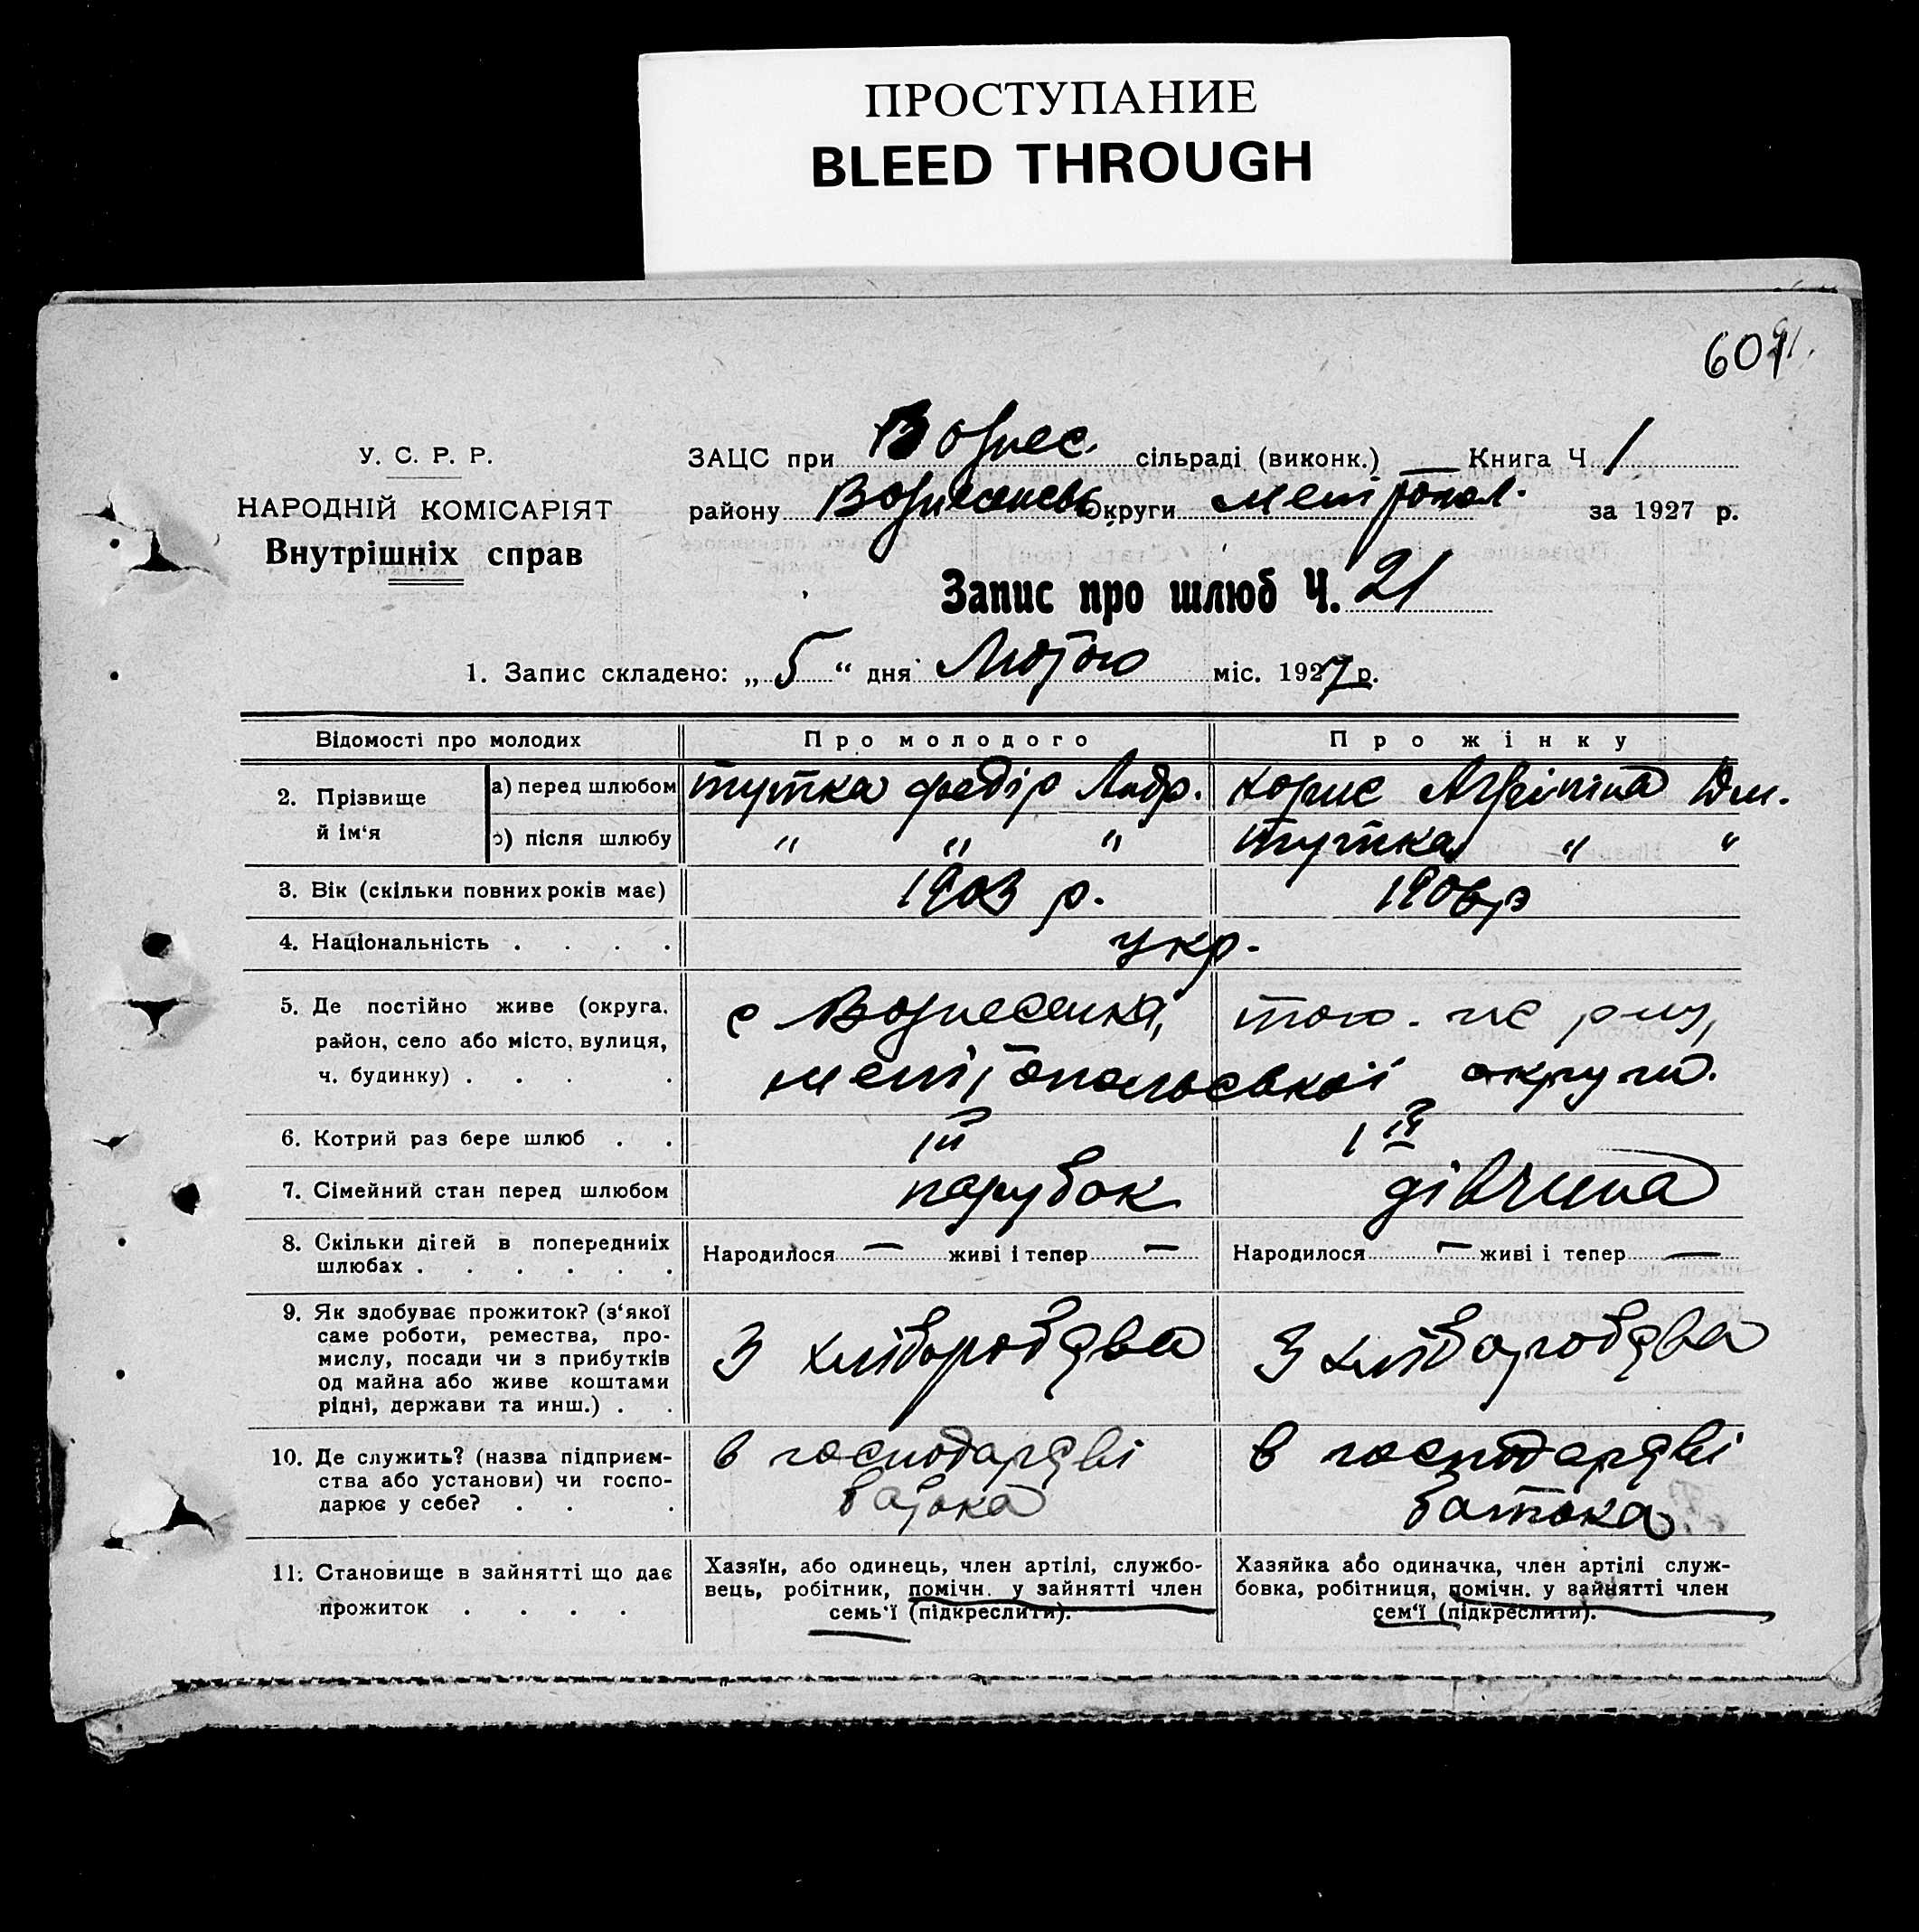 ПРОСТУПАНИЕ
BLEED THROUGH
У. С. Р. Р.
НАРОДНІЙ КОМІСАРІЯТ
Внутрішніх справ
ЗАЦС при Вознес. сільраді (виконк.) — Книга Ч 1
району Вознесенськ Округи Мелітопол. за 1927 р.
Запис про шлюб Ч. 21
1. Запис складено: „ 5 “ дня Лютого міс. 1927 р.
Відомості про молодих Про молодого Про жінку
2. Прізвище й ім‘я
а) перед шлюбом тутка федір Андр. Дм.
б) після шлюбу " " " тутка " "
3. Вік (скільки повних років має) 1903 р. 1906 р
4. Національність . . . . укр.
5. Де постійно живе (округа, с Вознесенка, того-же р-ну,
район, село або місто, вулиця, мелітопольської округи.
ч. будинку) . . .
6. Котрий раз бере шлюб . . 1й 1й
7. Сімейний стан перед шлюбом парубок дівчина
8. Скільки дітей в попередніх Народилося — живі і тепер — Народилося — живі і тепер —
шлюбах . . . . . .
9. Як здобуває прожиток? (з‘якої
саме роботи, ремества, про-
мислу, посади чи з прибутків З хліборобства З хліборобства
од майна або живе коштами
рідні, держави та инш.) . .
10. Де служить? (назва підприєм- в господарстві в господарстві
ства або установи) чи госпо- батька батька
дарює у себе? . . .
11. Становище в зайнятті що дає прожиток . . . .
Хазяїн, або одинець, член артілі, службо-
вець, робітник, помічн. у зайнятті член
семь‘ї (підкреслити).
Хазяйка або одиначка, член артілі служ-
бовка, робітниця, помічн. у зайнятті член
сем‘ї (підкреслити).